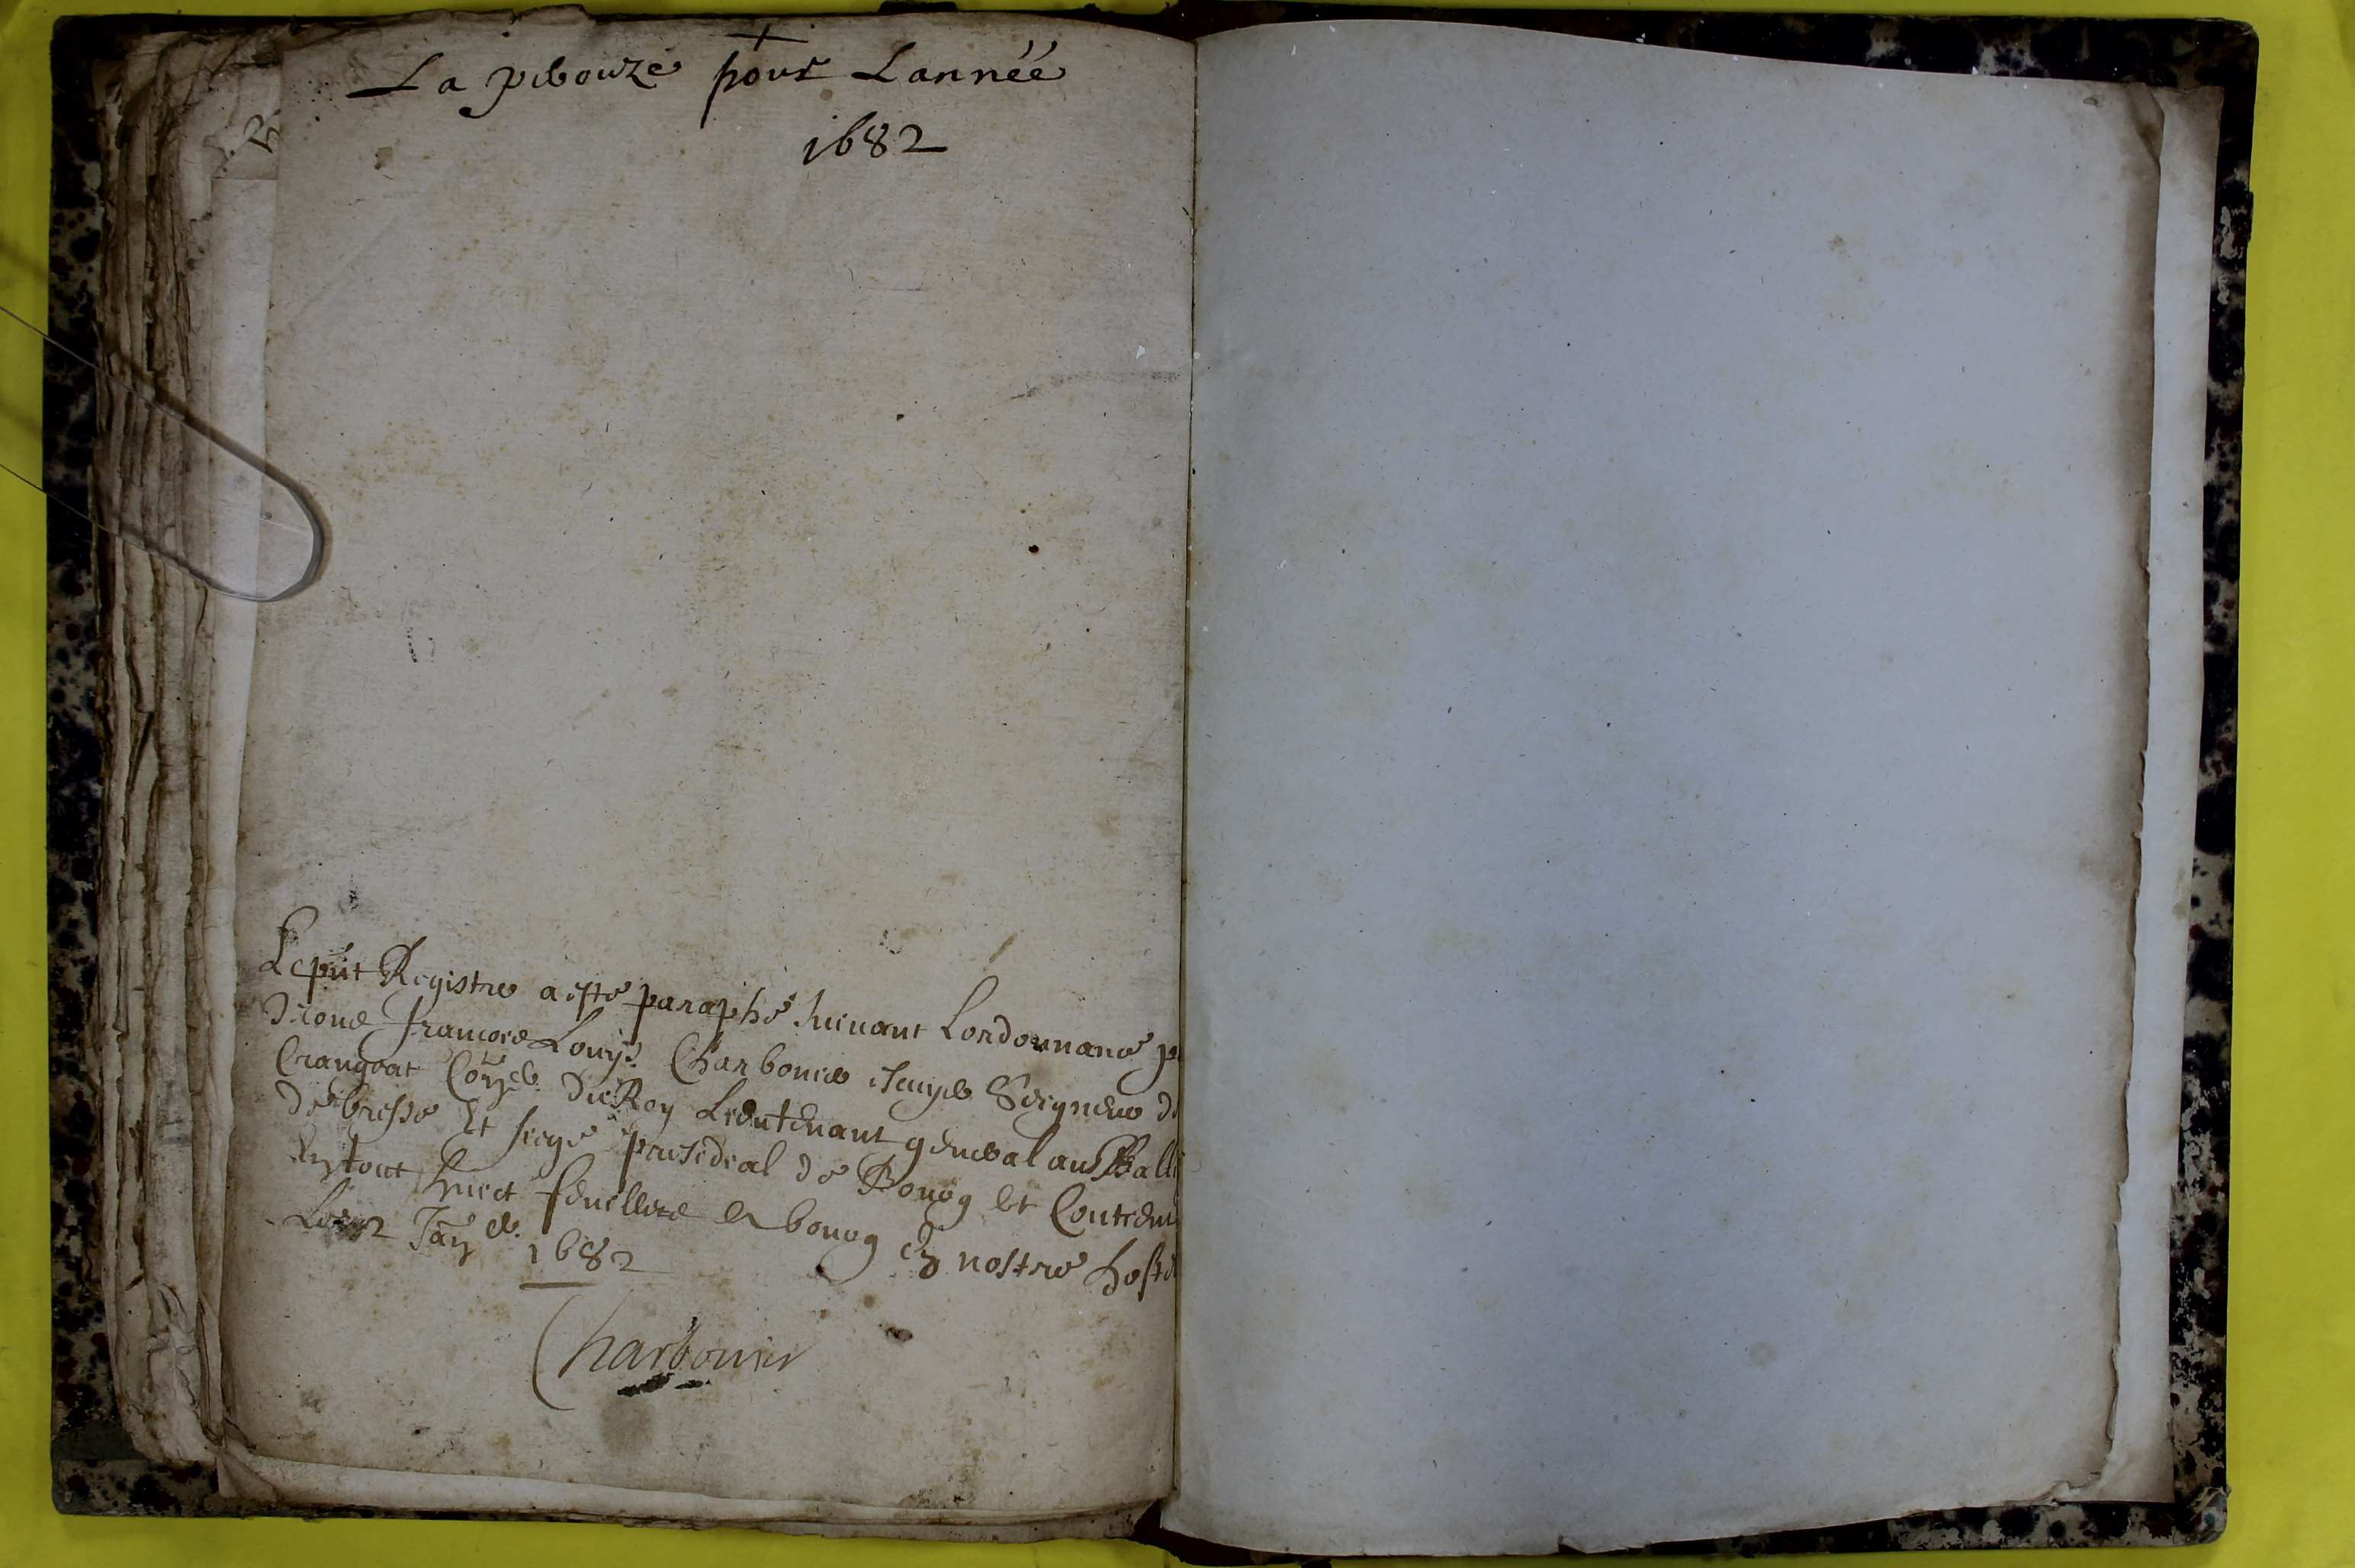 La pebouze pour Lannéé
1682
Le pnt Registre a esté paraphé suiuant Lordonnance p
Nous francois Louys Charbonier escuyer Seigneur de
Crangeat Coner du Roy Lieutenant general au Balli
de bresse Et siege presidial de Bourg Et Contenu
En tout huict feuilletz a bourg En nostre hoste
Le 2 Janer 1682
Charbonier